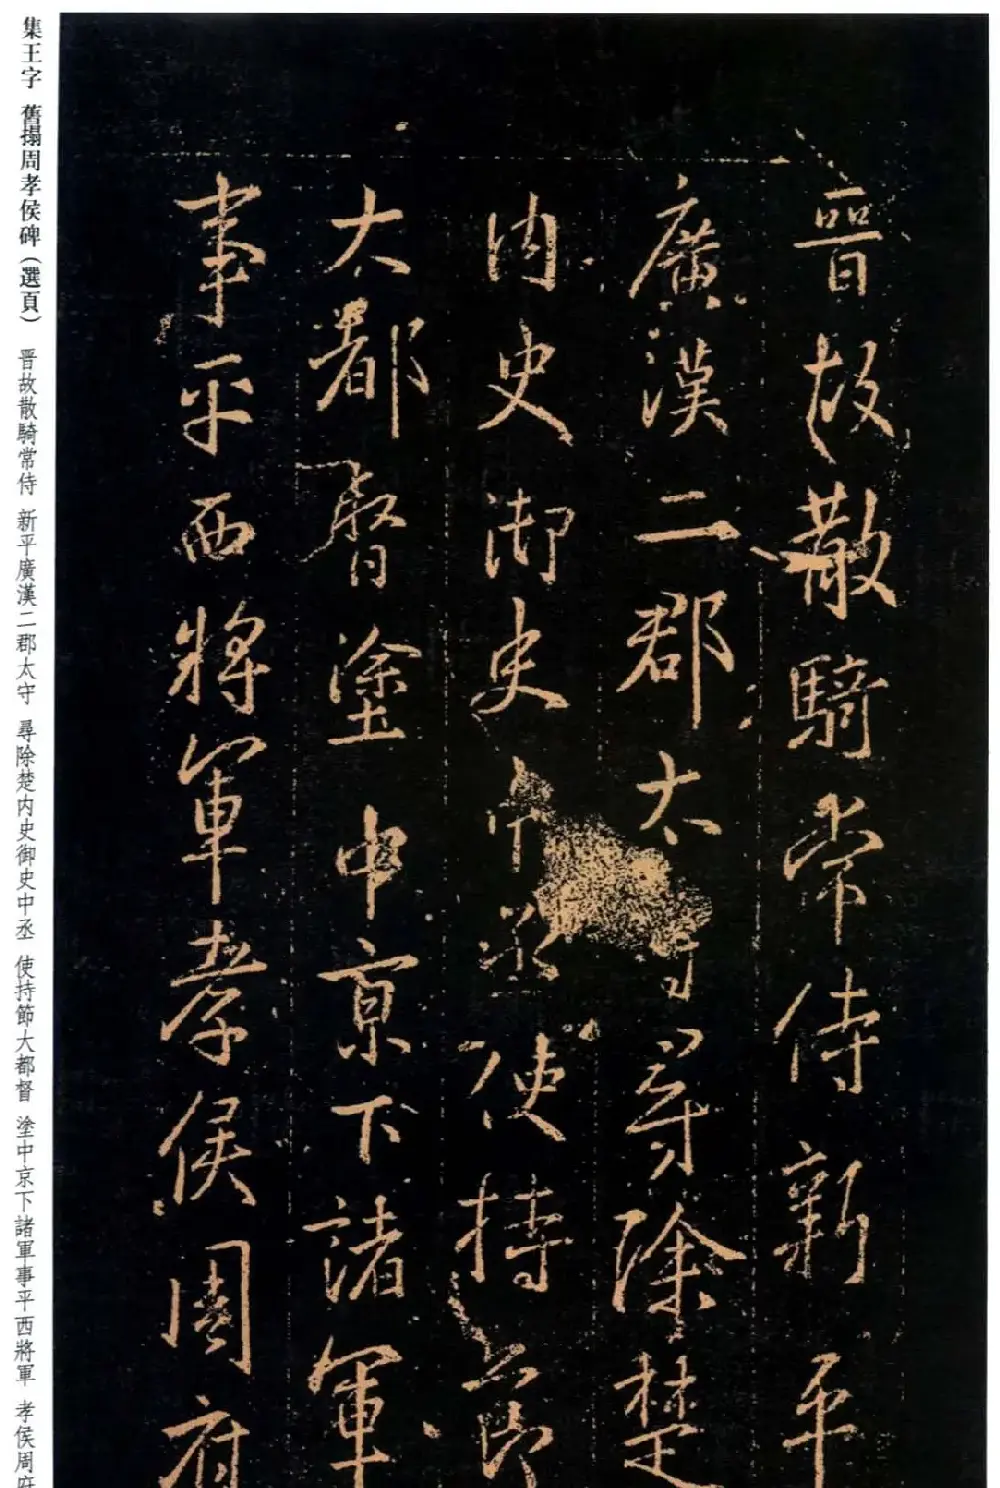 晉故散騎常侍新平
廣漢二郡太守尋除楚
內史御史中丞使持節
大都督塗中京下諸軍
事平西將軍孝侯周府
集王字 舊搨周孝侯碑(選頁) 晋故散騎常侍 新平廣漢二郡太守 尋除楚内史御史中丞 使持節大都督 塗中京下諸軍事平西將軍 孝侯周府